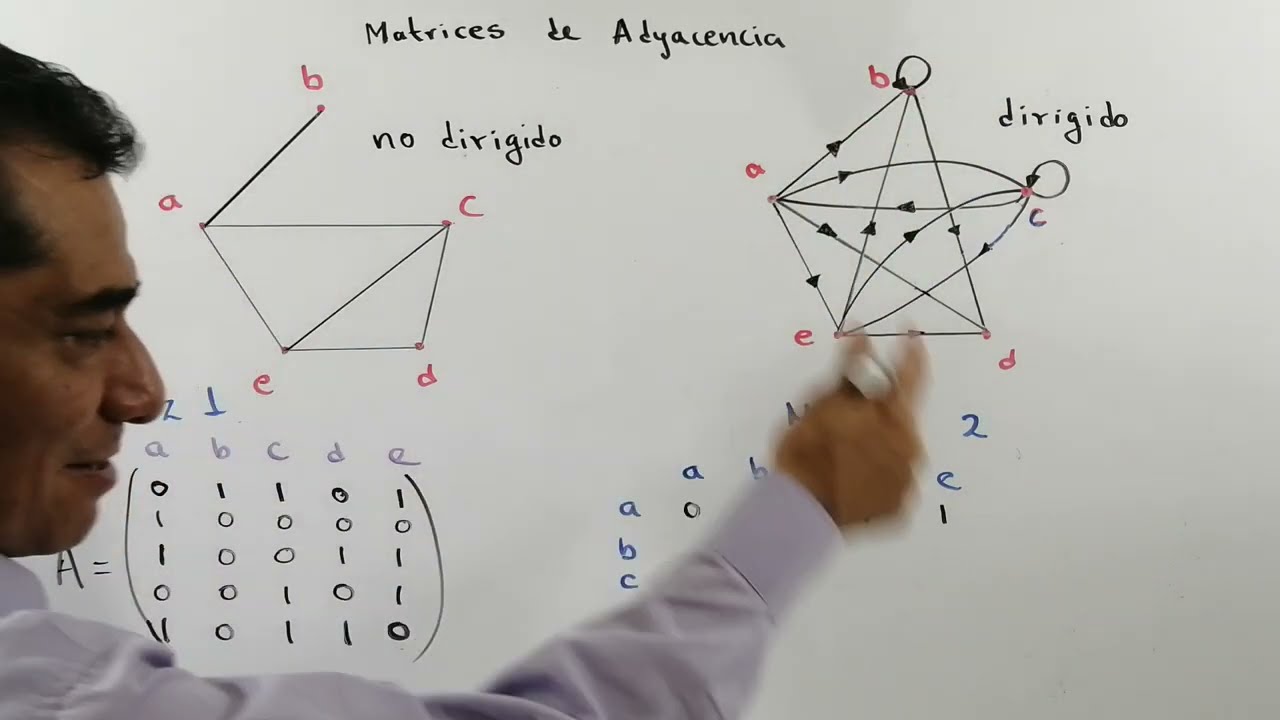 Matrices de Adyacencia
b
no dirigido
a
c
e
d
1
a b c d e
0 1 1 0 1
1 0 0 0 0
A = 1 0 0 1 1
0 0 1 0 1
1 0 1 1 0
b
dirigido
a
c
e
d
2
a b e
a 0 1
b
c